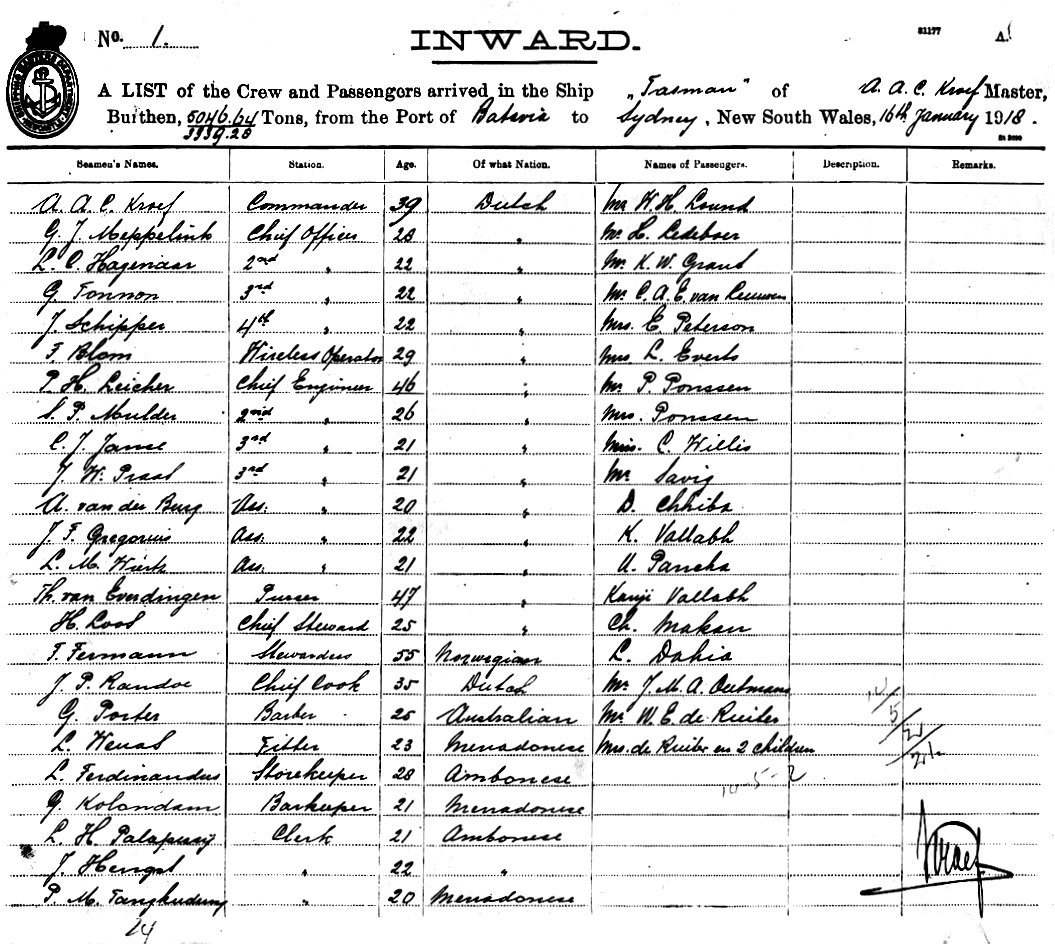 No. 1.
INWARD.
31177
A.
A LIST of the Crew and Passengers arrived in the Ship "Tasman" of A. A. C. Kroef Master,
Burthen, 5046.64 Tons, from the Port of Batavia to Sydney, New South Wales, 16th January 1918.
3339.28
Seamen's Names. Station. Age. Of what Nation. Names of Passengers. Description. Remarks.
A. A. C. Kroef Commander 39 Dutch Mr W. H. Lound
G. J. Meppelink Chief Officer 28 " Mr H. Ledeboer
L. C. Hagenaar 2nd " 22 " Mr. K. W. Grant
G. Tonnon 3rd " 22 " Mr C. A. E. van Leeuwen
J. Schipper 4th " 22 " Mrs. E. Peterson
F. Blom Wireless Operator 29 " Mrs. L. Everts
P. H. Leicher Chief Engineer 46 " Mr P. Ponssen
S. P. Mulder 2nd " 26 " Mrs. Ponssen
C. J. Janse 3rd " 21 " Miss. C. Willis
J. W. Praat 3rd " 21 " Mr Savig
A. van der Burg Ass. " 20 " D. Chhiba
J. F. Gregorius Ass. " 22 " K. Vallabh
L. M. Wierts Ass. " 21 " U. Pancha
Th. van Everdingen Purser 47 " Kanji Vallabh
H. Loos Chief Steward 25 " Ch. Makan
F. Fermann Stewardess 55 Norwegian L. Dahia
J. P. Randoe Chief Cook 35 Dutch Mr J. M. A. Oertmans
G. Porter Barber 25 Australian Mr W. E. de Ruiter
L. Wenas Fitter 23 Menadonese Mrs. de Ruiter en 2 children
L. Ferdinandus Storekeeper 28 Ambonese
G. Kolondam Barkeeper 21 Menadonese
L. H. Palapessy Clerk 21 Ambonese
J. Hengst " 22 "
P. M. Tangkudung " 20 Menadonese
24
14-5-2
Kroef